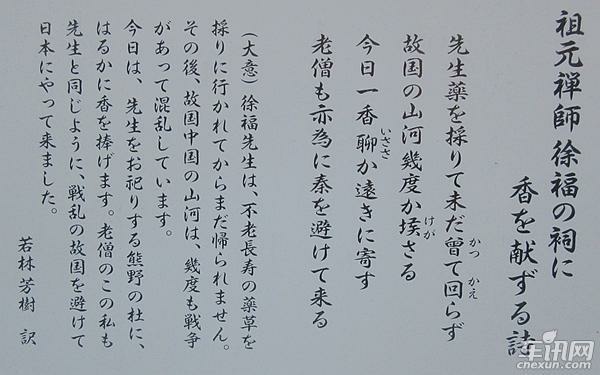 祖元禅師徐福の祠に
香を献ずる詩
先生薬を採りて未だ曾て回らず
かつ かえ
故国の山河幾度か埃さる
けが
今日一香聊か遠きに寄す
いささ
老僧も亦為に秦を避けて来る
(大意)徐福先生は、不老長寿の薬草を
採りに行かれてからまだ帰られません。
その後、故国中国の山河は、幾度も戦争
があって混乱しています。
今日は、先生をお祀りする熊野の杜に、
はるかに香を捧げます。老僧のこの私も
先生と同じように、戦乱の故国を避けて
日本にやって来ました。
若林芳樹 訳
车讯网
cnexun.com